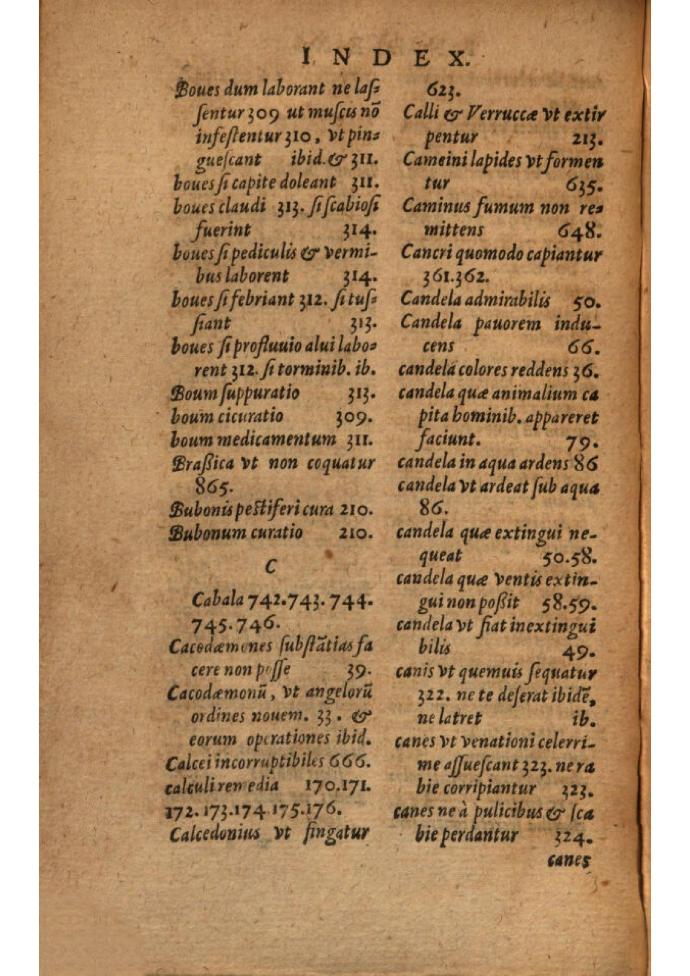 INDEX.
Boues dum laborant ne laſ=
ſentur 309 ut muſcis nō
infeſtentur 310, vt pin=
gueſcant ibid. & 311.
boues ſi capite doleant 311.
boues claudi 313. ſi ſcabioſi
fuerint 314.
boues ſi pediculis & vermi-
bus laborent 314.
boues ſi febriant 312. ſi tuſ=
ſiant 313.
boues ſi profluuio alui labo=
rent 312. ſi torminib. ib.
Boum ſuppuratio 313.
boum cicuratio 309.
boum medicamentum 311.
Braßica vt non coquatur
865.
Bubonis peſtiferi cura 210.
Bubonum curatio 210.
C
Cabala 742.743.744.
745.746.
Cacodæmones ſubſtātias fa
cere non poſſe 39.
Cacodæmonū, vt angelorū
ordines nouem. 33. &
eorum operationes ibid.
Calcei incorruptibiles 666.
calculi remedia 170.171.
172.173.174 175.176.
Calcedonius vt fingatur
623.
Calli & Verrucæ vt extir
pentur 213.
Cameini lapides vt formen
tur 635.
Caminus fumum non re=
mittens 648.
Cancri quomodo capiantur
361.362.
Candela admirabilis 50.
Candela pauorem indu-
cens 66.
candela colores reddens 36.
candela quæ animalium ca
pita hominib. appareret
faciunt. 79.
candela in aqua ardens 86
candela vt ardeat ſub aqua
86.
candela quæ extingui ne-
queat 50.58.
candela quæ ventis extin-
gui non poßit 58.59.
candela vt fiat inextingui
bilis 49.
canis vt quemuis ſequatur
322. ne te deſerat ibidē,
ne latret ib.
canes vt venationi celerri-
me aſſueſcant 323. ne ra
bie corripiantur 323.
canes ne à pulicibus & ſca
bie perdantur 324.
canes